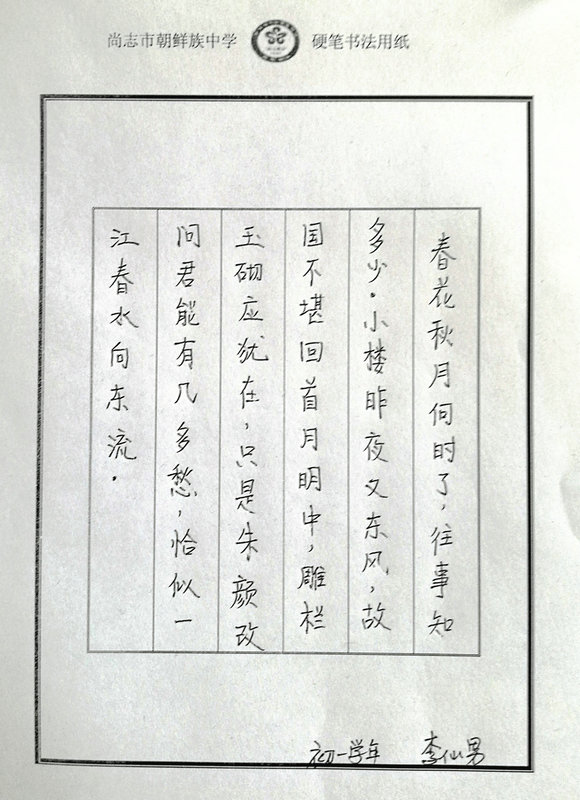 尚志市朝鲜族中学 硬笔书法用纸
春花秋月何时了,往事知
多少。小楼昨夜又东风,故
国不堪回首月明中,雕栏
玉砌应犹在,只是朱颜改
问君能有几多愁,恰似一
江春水向东流。
初一学年 李仙男